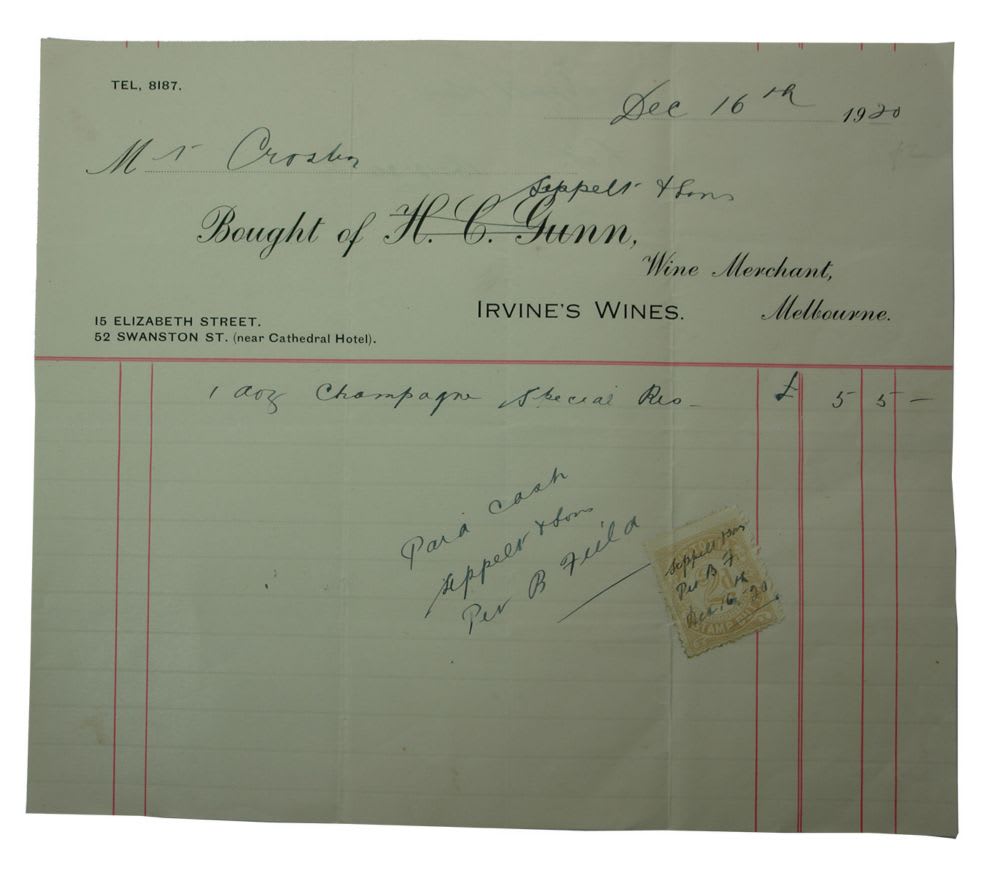 TEL, 8187.
Dec 16th 1920
Mr Crosby
Seppelt & Sons
Bought of H. C. Gunn,
Wine Merchant,
IRVINE'S WINES. Melbourne.
15 ELIZABETH STREET.
52 SWANSTON ST. (near Cathedral Hotel).
1 doz Champagne Special Res £ 5 5 –
Paid Cash
Seppelt & Sons
Per B Field
Seppelt & Sons
Per B F
2D
Dec 16th -20.
STAMP DUTY